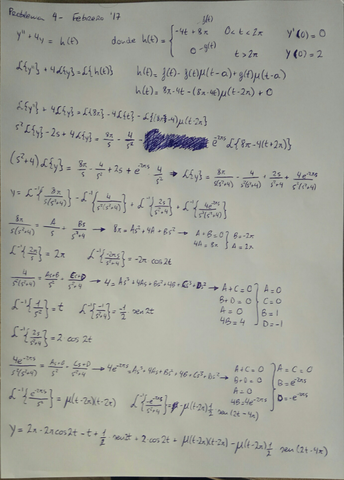 Problema 4 - Febrero '17
y'' + 4y = h(t) donde h(t) = { -4t + 8π 0 < t < 2π y'(0) = 0
0 t > 2π y(0) = 2
ℒ{y''} + 4ℒ{y} = ℒ{h(t)} h(t) = f(t) - f(t)μ(t-a) + g(t)μ(t-a)
h(t) = 8π - 4t - (8π - 4t)μ(t-2π) + 0
ℒ{y''} + 4ℒ{y} = ℒ{8π} - 4ℒ{t} - ℒ{(8π-4t)μ(t-2π)}
s²ℒ{y} - 2s + 4ℒ{y} = 8π/s - 4/s² - e^(-2πs) ℒ{8π - 4(t+2π)}
(s²+4)ℒ{y} = 8π/s - 4/s² + 2s + e^(-2πs) 4/s² ⇒ ℒ{y} = 8π/s(s²+4) - 4/s²(s²+4) + 2s/s²+4 + 4e^(-2πs)/s²(s²+4)
y = ℒ⁻¹{8π/s(s²+4)} - ℒ⁻¹{4/s²(s²+4)} + ℒ⁻¹{2s/s²+4} + ℒ⁻¹{4e^(-2πs)/s²(s²+4)}
8π/s(s²+4) = A/s + Bs/s²+4 → 8π = As² + 4A + Bs² → A+B=0 } B=-2π
4A = 8π } A = 2π
ℒ⁻¹{2π/s} = 2π ℒ⁻¹{-2πs/s²+4} = -2π cos2t
4/s²(s²+4) = As+B/s² + Cs+D/s²+4 → 4 = As³ + 4As + Bs² + 4B + Cs³ + Ds² → A+C=0 A=0
B+D=0 C=0
A=0 B=1
4B=4 D=-1
ℒ⁻¹{1/s²} = t ℒ⁻¹{-1/s²+4} = -1/2 sen2t
ℒ⁻¹{2s/s²+4} = 2 cos 2t
4e^(-2πs)/s²(s²+4) = As+B/s² + Cs+D/s²+4 → 4e^(-2πs) = As³ + 4As + Bs² + 4B + Cs³ + Ds² → A+C=0 A=C=0
B+D=0 B=e^(-2πs)
A=0 D=-e^(-2πs)
4B=4e^(-2πs)
ℒ⁻¹{e^(-2πs)/s²} = μ(t-2π)(t-2π) ℒ⁻¹{-e^(-2πs)/s²+4} = -μ(t-2π) 1/2 sen(2t-4π)
y = 2π - 2π cos2t - t + 1/2 sen2t + 2 cos2t + μ(t-2π)(t-2π) - μ(t-2π) 1/2 sen(2t-4π)